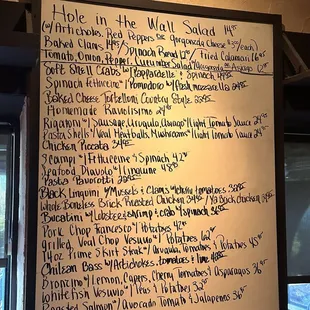 Hole in the Wall Salad 14
(w/Artichokes, Red Peppers or Gorgonzola Cheese $3 /each)
Baked Clams 14 /Spinach Bread 12 / Fried Calamari 16
Tomato, Onion, Pepper, Cucumber Salad 12
Soft Shell Crabs w/Pappardelle & Spinach
Spinach Fettuccine w/ Pomodoro w/Fresh mozzarella 24
Baked Cheese Tortellini Country Style
Homemade Raviolismo 24
Rigatoni w/Sausage, Arugula, Asiago w/Light Tomato Sauce 24
Pasta Shells w/Veal Meatballs, Mushrooms w/Light Tomato Sauce 24
Chicken Piccata 34
Scampi w/ Fettuccine & Spinach 42
Seafood, Diavolo w/ Linguine 48
Pasta Pavorotti
Black Linguini w/Mussels & Clams w/ tomatoes 38
Whole Boneless Brick Roasted Chicken 34 / 1/2 Back Chicken
Bucatini w/Lobster & Shrimp & crab w/spinach 36
Pork Chop Francesco w/ Potatoes 42
Grilled, Veal Chop Vesuvio w/ Potatoes 62
14oz Prime Skirt Steak w/ Arugula, Tomatoes & Potatoes 45
Chilean Bass w/Artichokes, tomatoes & Lime 48
Bronzino w/Lemon, Capers, Cherry Tomatoes & Asparagus 36
Whitefish Vesuvio w/ Peas & Potatoes 32
Roasted Salmon w/Avocado Tomato & Jalapenos 36